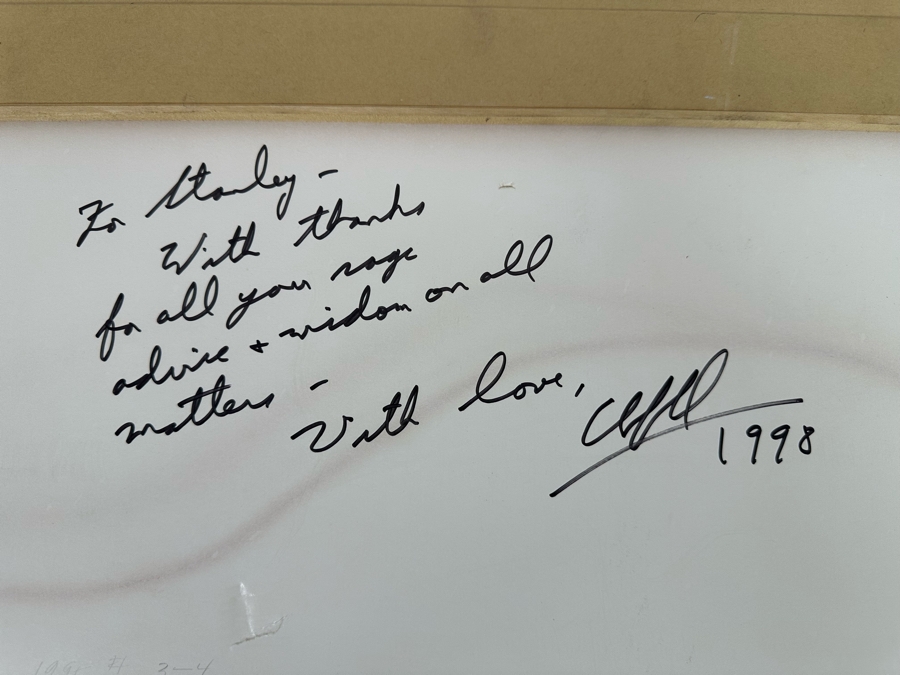 To Stanley -
With thanks
for all your sage
advice + widom on all
matters -
With love,
1998
2-4